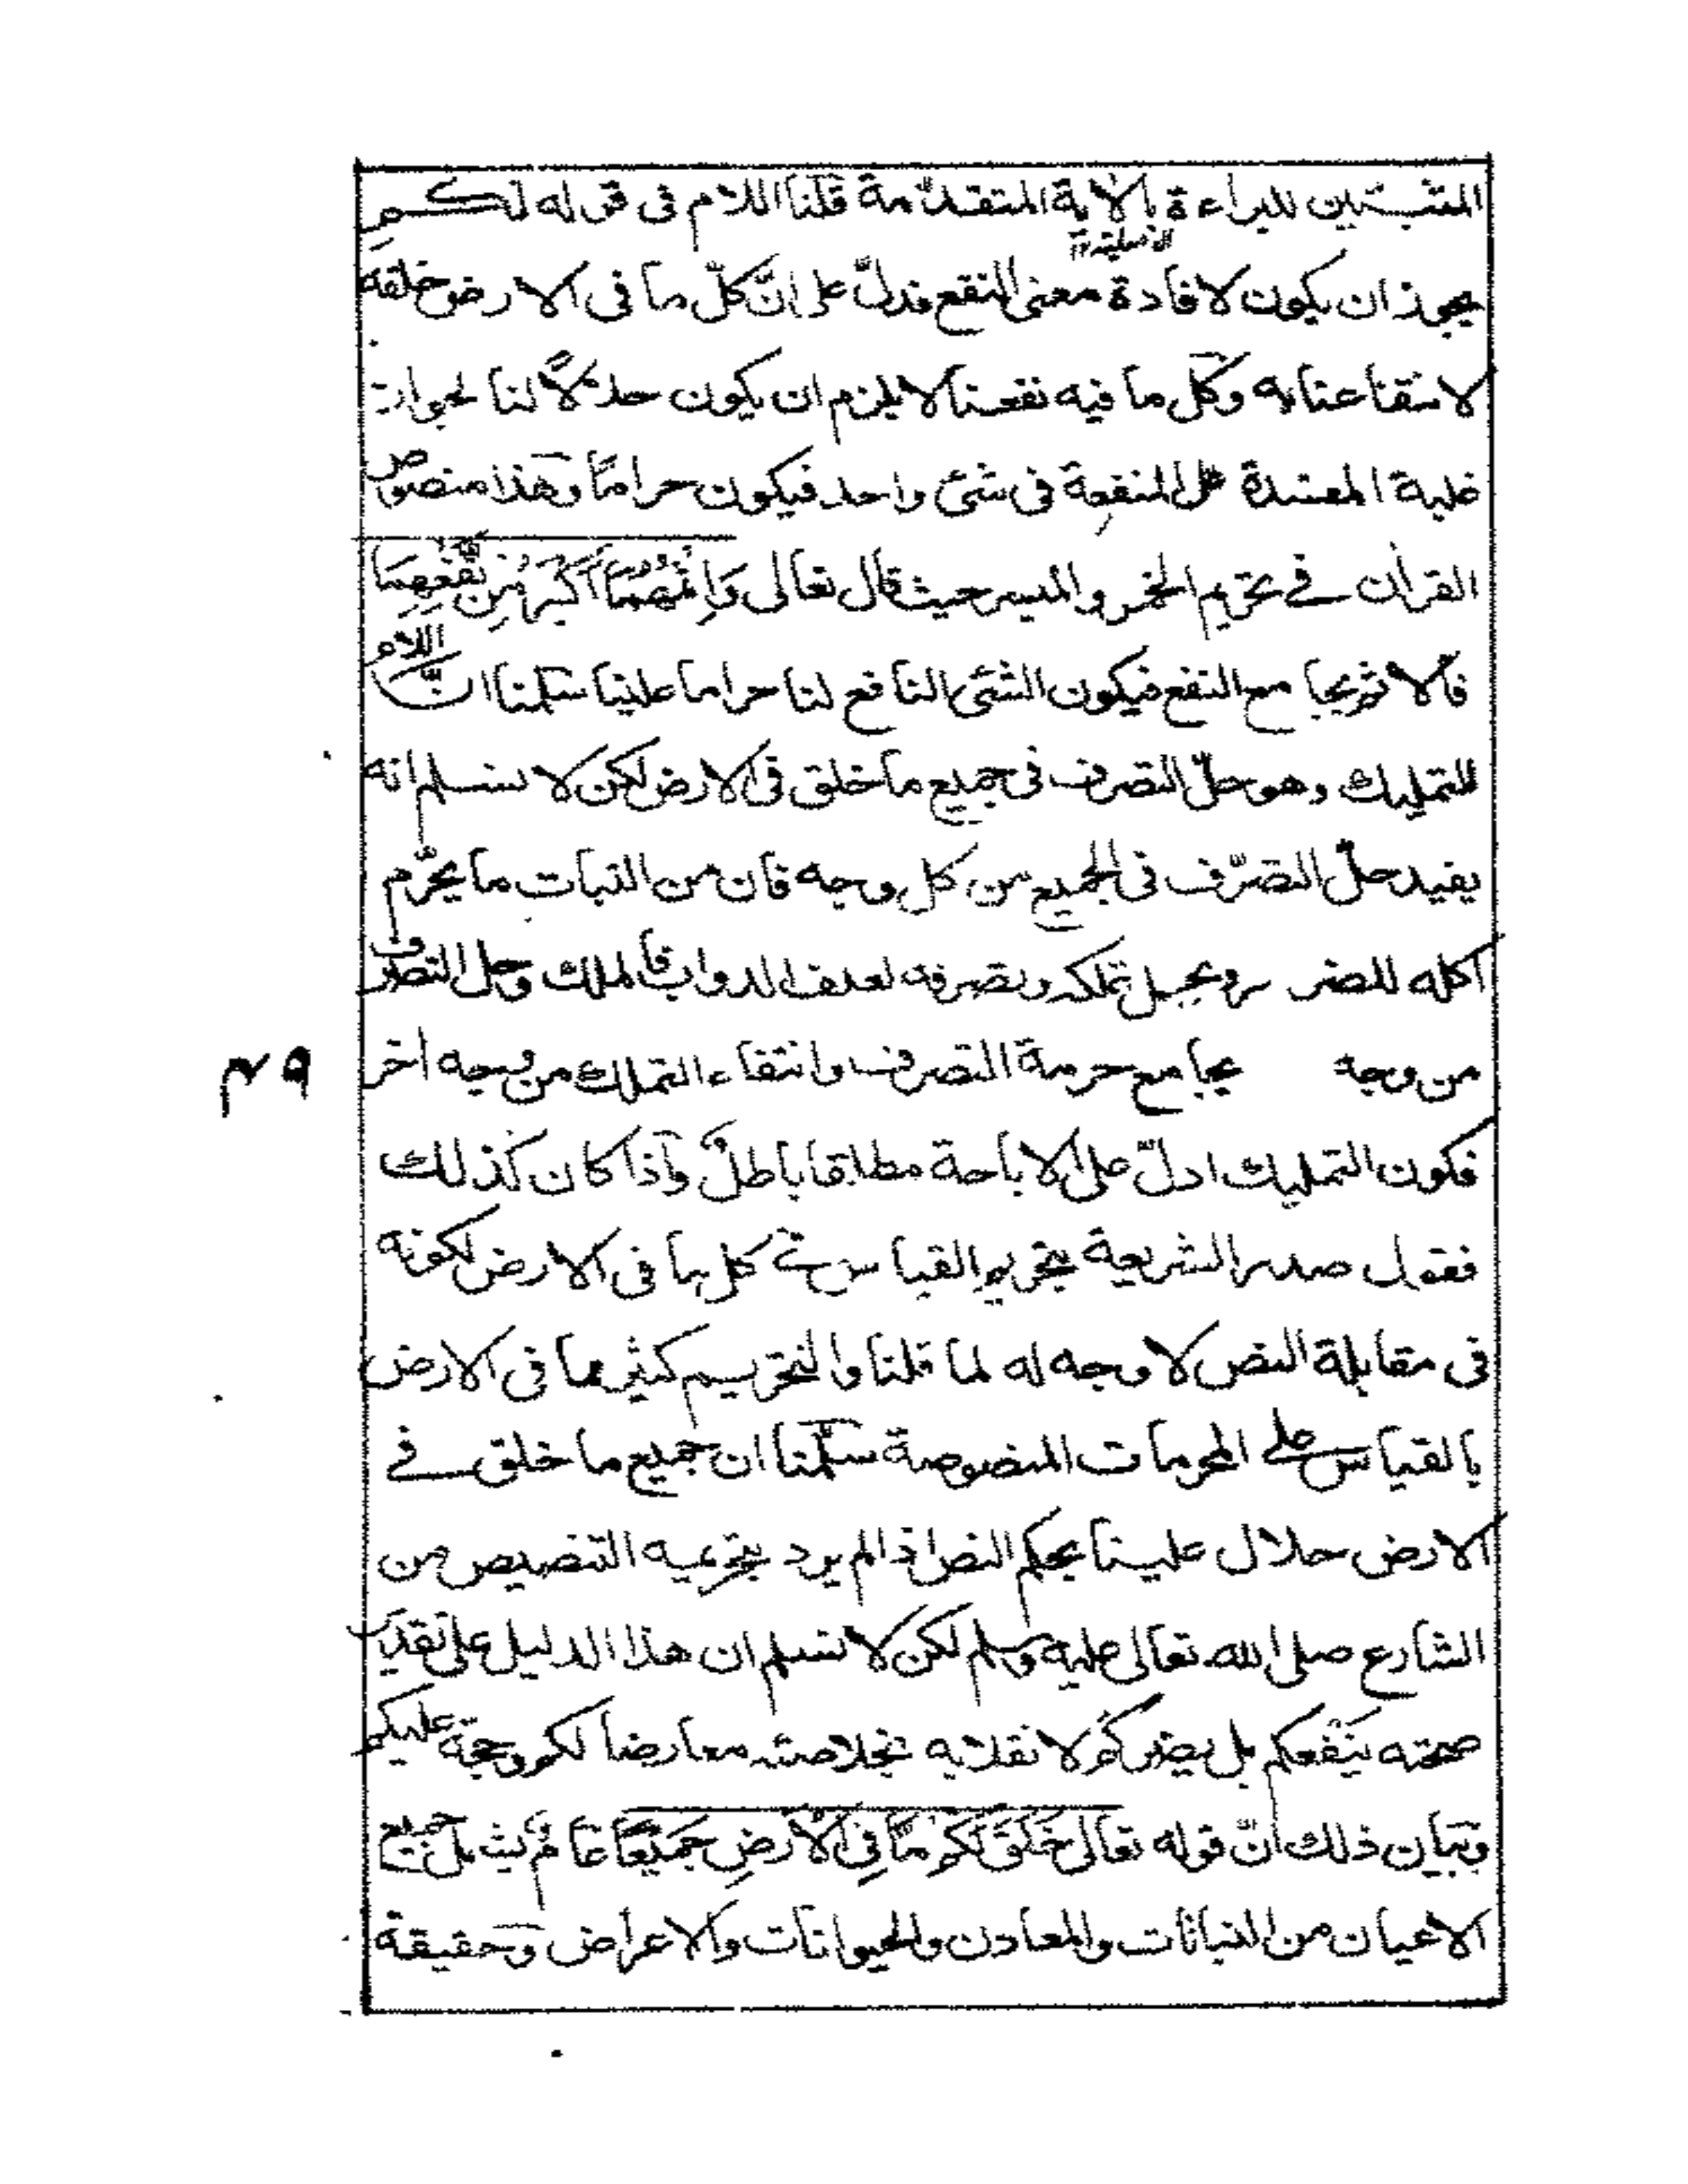 المثبتين للبراءة الاصلية بالآية المتقدّمة قلنا اللام فى قوله لكم
يجوز ان يكون لافادة معنى النفع فدلّ على انّ كلّ ما فى الارض خلقه
لانتفاعنا به وكلّ ما فيه نفعنا لا يلزم ان يكون حلالًا لنا لجواز
غلبة المفسدة على المنفعة فى شئ واحد فيكون حرامًا وهذا منصوص
القران فے تحريم الخمر والميسر حيث قال تعالى وَاِثْمُهُمَا اَكْبَرُ مِنْ نَّفْعِهِمَا
فالاثم يجامع النفع فيكون الشئ النافع لنا حراما علينا سلمنا انّ اللام
للتمليك وهو حلّ التصرف فى جميع ما خلق فى الارض لكن لا نسلم انه
يفيد حلّ التصرّف فى الجميع من كل وجه فان من النبات ما يحرّم
اكله للضرر ويحل تملكه وتصرفه لعلف الدواب فالملك وحل التصرف
من وجه يجامع حرمة التصرف وانتفاء التملك من وجه اخر
٤٩
فكون التمليك ادلّ على الاباحة مطلقا باطلٌ واذا كان كذلك
فقول صدر الشريعة بتحريم القياس فے كل ما فى الارض لكونه
فى مقابلة النص لا وجه له لما قلنا والتحريم كثير مما فى الارض
بالقياس علے المحرمات المنصوصة سلّمنا ان جميع ما خلق فے
الارض حلال علينا بحكم النص اذا لم يرد بتحريمه التنصيص من
الشارع صلى الله تعالى عليه وسلم لكن لا نسلم ان هذا الدليل على تقدير
صحته يَنْفعكم بل يضركم لانقلابه بخلاصته معارضا لكم وحجة عليكم
وبيان ذلك انّ قوله تعالى خَلَقَ لَكُمْ مَّا فِى الْاَرْضِ جَمِيْعًا عَامٌ يشمل جميع
الاعيان من النباتات والمعادن والحيوانات والاعراض وحقيقة